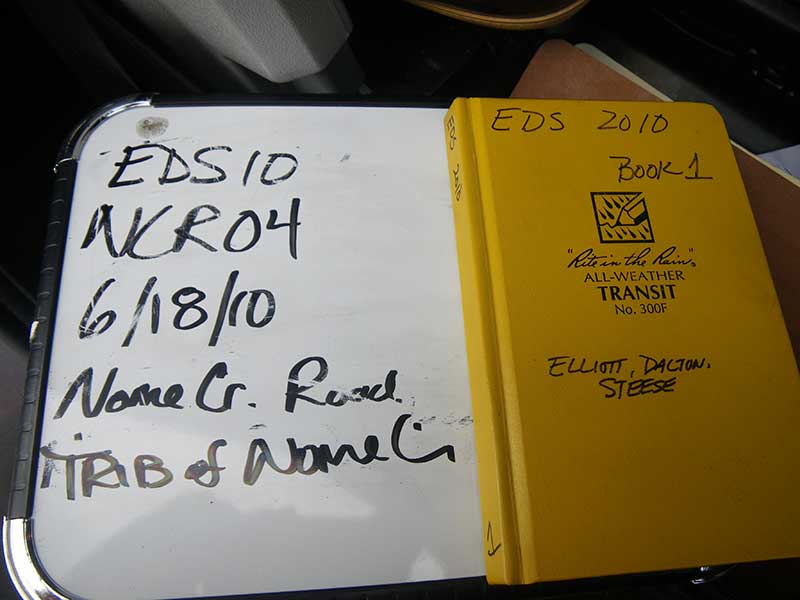 EDS10
NCR04
6/18/10
Nome Cr. Road
TRIB of Nome Cr
EDS 2010
EDS 2010
Book 1
"Rite in the Rain"®
ALL-WEATHER
TRANSIT
No. 300F
ELLIOTT, DALTON,
STEESE
1